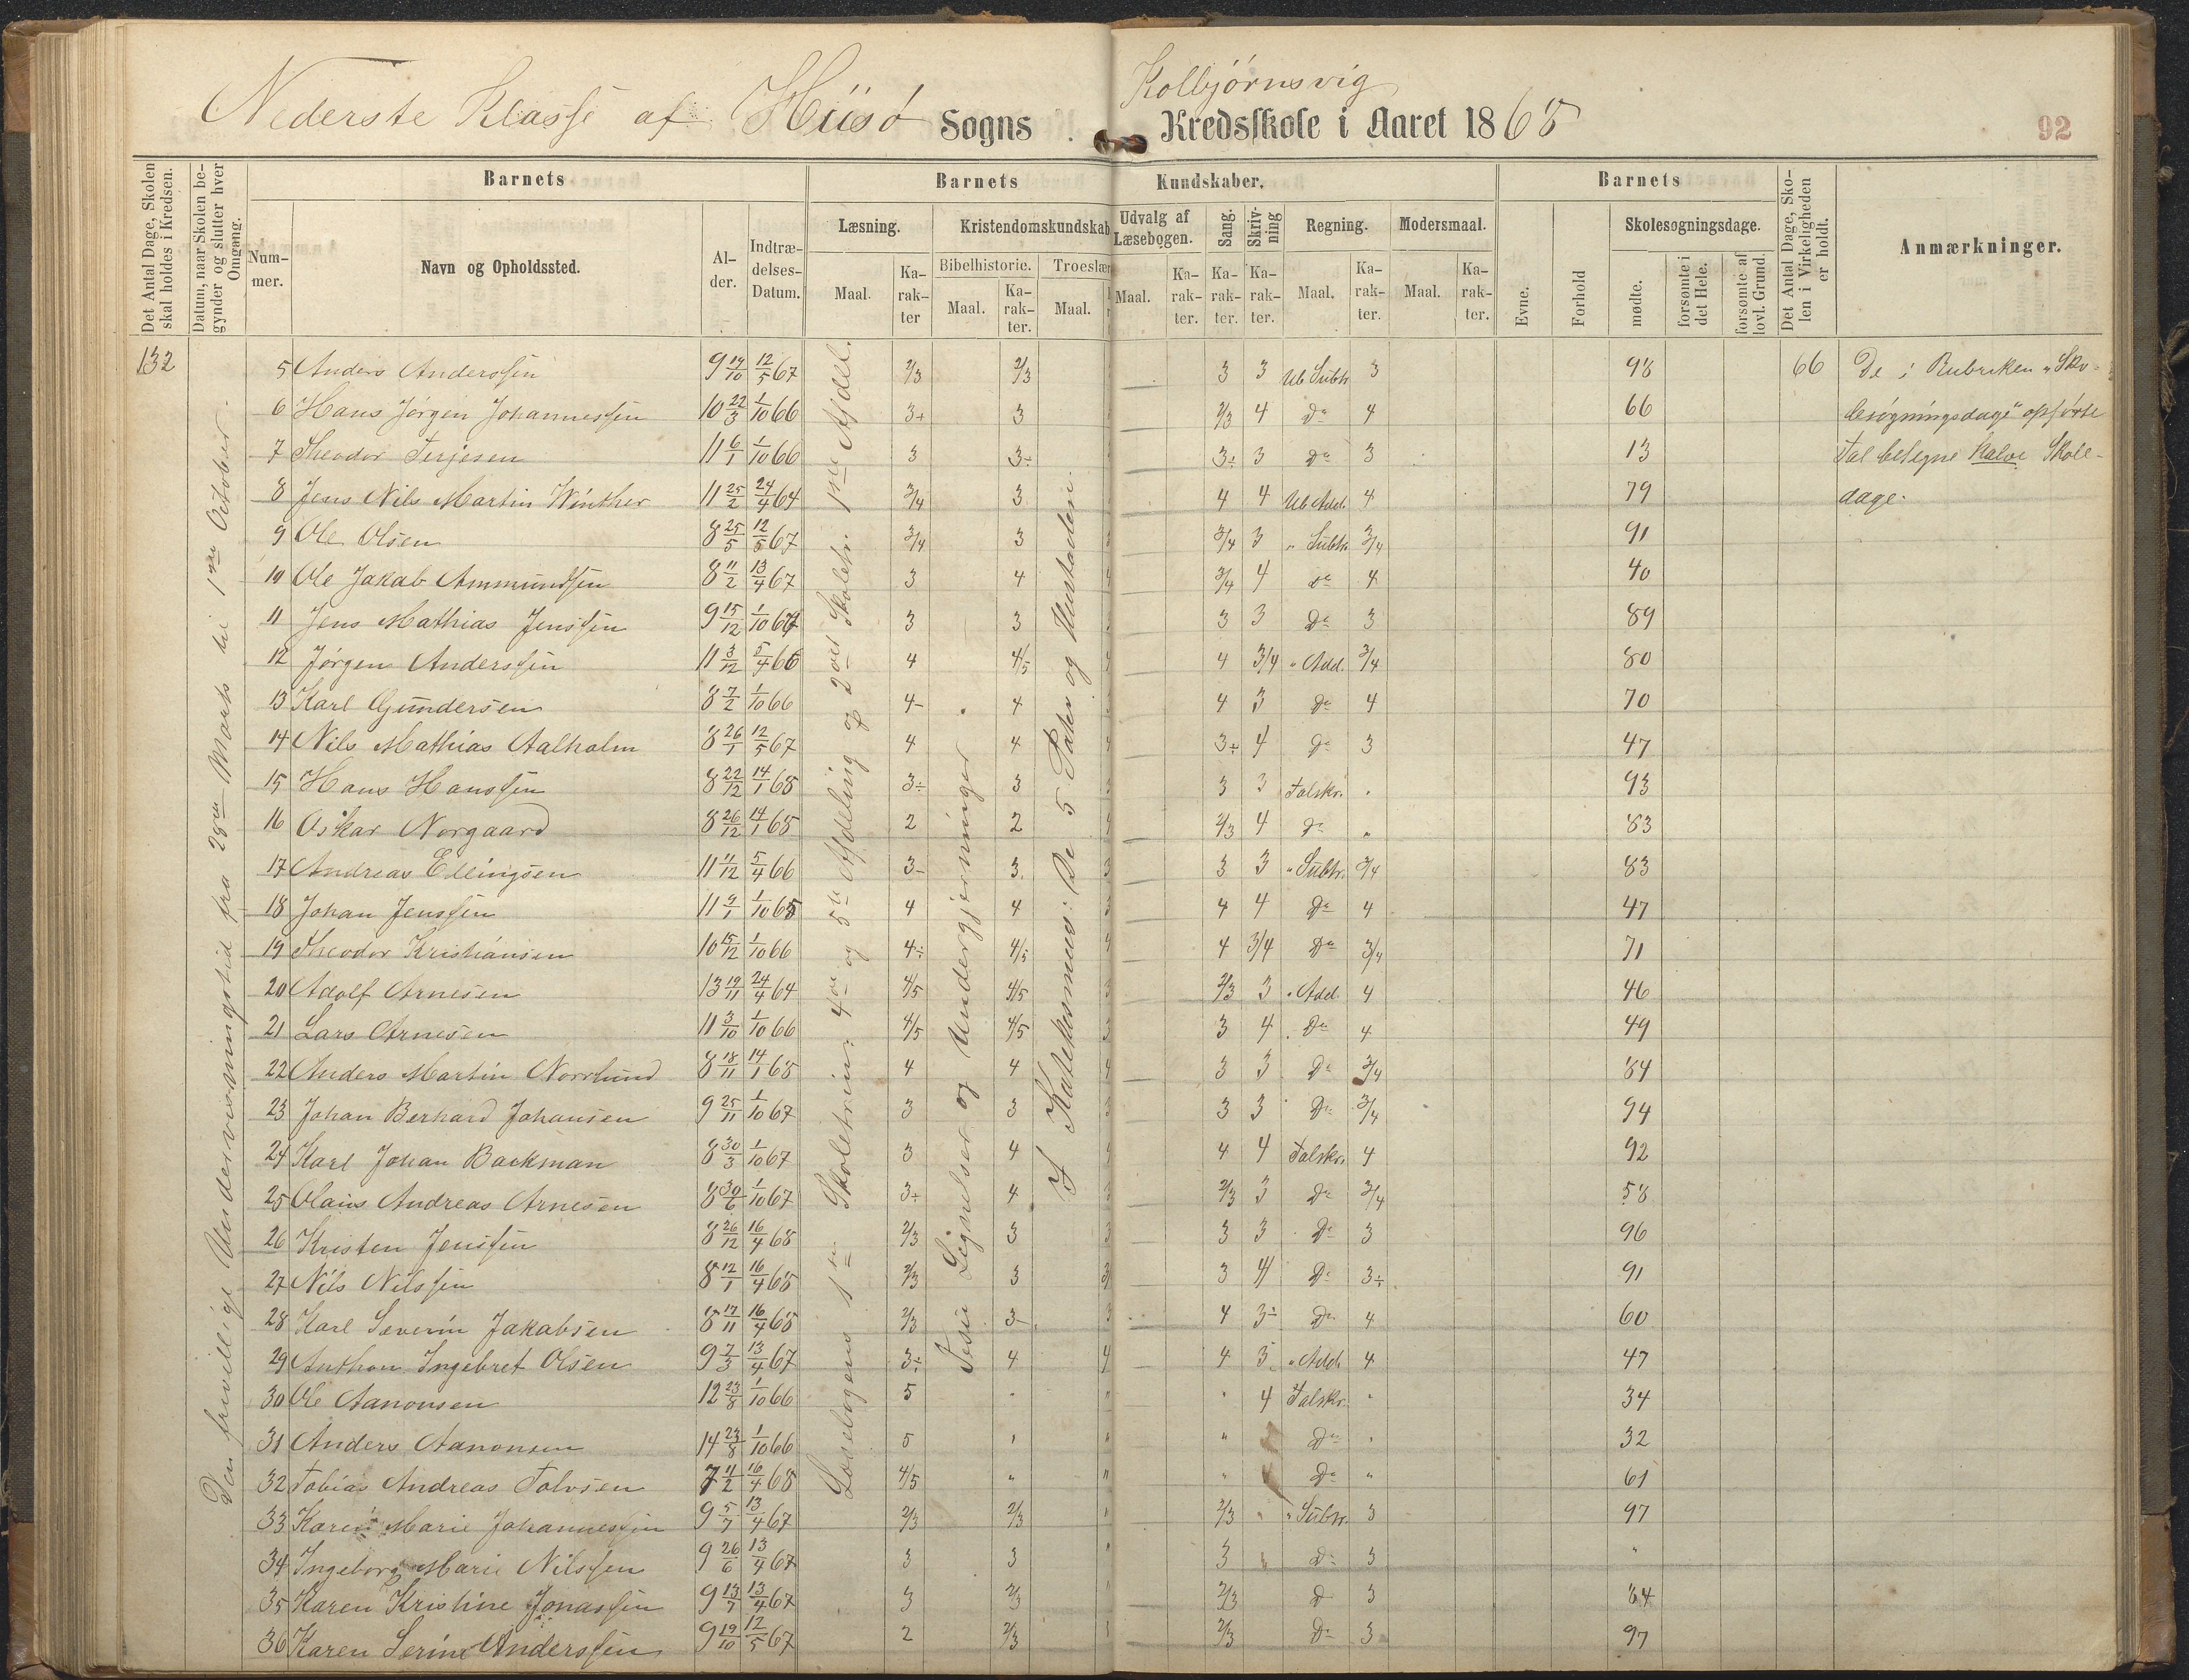 Nederste Klasse af Hisø Sogns Kolbjørnsvig Kredsskole i Aaret 1868
92
Det Antal Dage, Skolen skal holdes i Kredsen.
Datum, naar Skolen begynder og slutter hver Omgang.
Barnets
Barnets Kundskaber.
Barnets
Det Antal Dage, Skolen i Virkeligheden er holdt.
Anmærkninger.
Nummer.
Navn og Opholdssted.
Alder.
Indtrædelses-Datum.
Læsning.
Kristendomskundskab
Udvalg af Læsebogen.
Sang.
Skrivning
Regning.
Modersmaal.
Evne.
Forhold
Skolesøgningsdage.
Maal.
Karakter
Bibelhistorie.
Maal.
Karakter.
Troeslær
Maal.
Maal.
Karakter.
Karakter.
Karakter.
Maal.
Karakter.
Maal.
Karakter.
mødte.
forsømte i det Hele.
forsømte af lovl. Grund.
132
Den frivillige Undervisningstid fra 28de Marts til 1ste October.
Læsebogens 1ste Skoletrin: 4de og 5te Afdeling og 2det Skoletr. 1ste Afdel.
Jesu Lignelser og Undergjerninger
I Katekismus: De 5 Parter og Hustavlen.
5 Anders Anderssen 9 19/10 12/5 67 2/3 2/3 3 3 Ub Subtr 3 98 66 De i Rubriken "Sko-
6 Hans Jørgen Johannessen 10 22/3 1/10 66 3+ 3 2/3 4 Do 4 66 lesøgningsdage" opførte
7 Theodor Terjesen 11 6/1 1/10 66 3 3÷ 3÷ 3 Do 3 13 Tal betegne halve Skole-
8 Jens Nils Martin Winther 11 25/2 24/4 64 3/4 3 4 4 Ub Add. 4 79 dage.
9 Ole Olsen 8 25/5 12/5 67 3/4 3 3/4 3 " Subtr. 3/4 91
10 Ole Jakab Ammundsen 8 11/2 13/4 67 3 4 3/4 4 Do 4 40
11 Jens Mathias Jenssen 9 15/12 1/10 67 3 3 3 3 Do 3 89
12 Jørgen Anderssen 11 3/12 5/4 66 4 4/5 4 3/4 " Add. 3/4 80
13 Karl Gundersen 8 7/2 1/10 66 4- 4 4 3 Do 4 70
14 Nils Mathias Aalholm 8 26/1 12/5 67 4 4 3÷ 4 Do 3 47
15 Hans Hanssen 8 22/12 14/1 68 3÷ 3 3 3 Talskr. " 93
16 Oskar Norgaard 8 26/12 14/1 68 2 2 2/3 4 Do " 83
17 Andreas Ellingsen 11 11/12 5/4 66 3- 3. 3 3 " Subtr. 3/4 83
18 Johan Jenssen 11 9/1 1/10 65 4 4 4 4 Do 4 47
19 Theodor Kristiansen 10 15/12 1/10 66 4÷ 4/5 4 3/4 Do 3/4 71
20 Adolf Arnesen 13 19/11 24/4 64 4/5 4/5 2/3 3 " Add. 4 46
21 Lars Arnesen 11 3/10 1/10 66 4/5 4/5 3 4 Do 4 49
22 Anders Martin Norrlund 8 18/11 14/1 68 4 4 3 3 Do 3/4 84
23 Johan Berhard Johansen 9 25/11 1/10 67 3 3 3 3 Do 3/4 94
24 Karl Johan Backman 8 30/3 1/10 67 3 4 4 4 Talskr. 4 92
25 Olaus Andreas Arnesen 8 30/6 1/10 67 3+ 4 2/3 3 Do 3/4 58
26 Kristen Jenssen 8 26/12 16/4 68 2/3 3 3 3 Do 3 96
27 Nils Nilssen 8 12/1 16/4 68 2/3 3 3 4 Do 3÷ 91
28 Karl Severin Jakabsen 8 17/11 16/4 68 2/3 3- 4 3÷ Do 4 60
29 Anthon Ingebret Olsen 9 7/3 13/4 67 3÷ 4 4 3 " Add. 4 47
30 Ole Aanonsen 12 23/8 1/10 66 5 " " 4 Talskr. " 34
31 Anders Aanonsen 14 23/8 1/10 66 5 " " Do " 32
32 Tobias Andreas Tolvsen 7 11/2 16/4 68 4/5 " " Do " 61
33 Karen Marie Johannessen 9 5/7 13/4 67 2/3 2/3 2/3 " " Subtr. 3 97
34 Ingeborg Marie Nilssen 9 26/6 13/4 67 3 3 3 Do 3 "
35 Karen Kristine Jonassen 9 13/7 13/4 67 3 2/3 2/3 D 3 84
36 Karen Serine Anderssen 9 19/10 12/5 67 2 2/3 2/3 Do 3 97